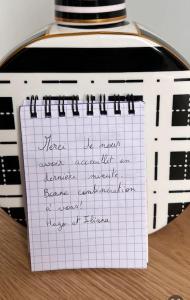 Merci de nous
avoir accueillit en
dernière minute.
Bonne continuation
à vous!
Hugo et Eliana